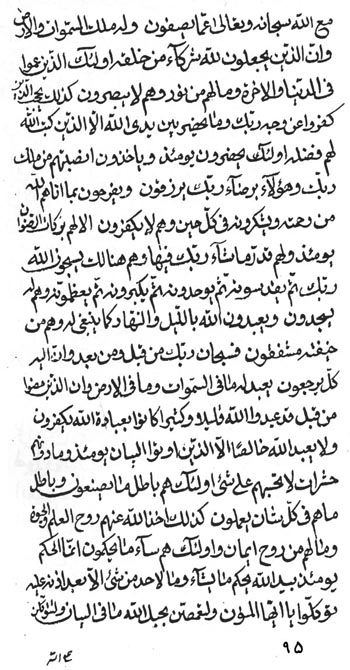 مع الله سبحانه وتعالی عما يصفون وله ملك السموات والارض
وان الذين يجعلون لله شركاء من خلقه اولئك الذين
فی الدنيا والاخرة وما لهم من نور وهم لا يبصرون كذلك
كفروا عن وجه ربك وما يحضر بين يدی الله الا الذين كتب الله
لهم وفضله اولئك يحضرون يومئذ وياخذون نصيبهم من ملك
ربك وهؤلاء برضاء ربك يرزقون ويفرحون بما اتاهم الله
من رحمته ويشكرونه فی كل حين وهم لا يكفرون الا لهم بركات الرضوان
يومئذ ولهم قدر ما شاء ربك فيها وهم هنالك يسبحون الله
ربك ثم يقدسونه ثم يوحدونه ثم يكبرونه ثم يعظمونه وهم له
يسجدون ويعبدون الله بالليل والنهار كما ينبغی له وهم من
خيفته مشفقون فسبحان ربك من قبل ومن بعد وان اليه
كل يرجعون يعبد له ما فی السموات وما فی الارض وان الذين
من قبل قد عبدوا الله قليلا وكثيرا كانوا بعبادة الله يكفرون
ولا يعبد الله خالصا الا الذين اوتوا البيان يومئذ وما
لا تحبهم علی شیء اولئك هم باطل ما يصنعون وباطل
ما هم فی كل شان يعملون كذلك اخذ الله عنهم روح العلم
وما لهم من روح ايمان واولئك هم ساء ما يحكمون انما الحكم
يومئذ بيد الله يحكم ما يشاء وما لاحد من شیء الا بعد اذنه عليه
توكلوا يا ايها المؤمنون ولتعتصمن بحبل الله ما فی البيان
٩٥